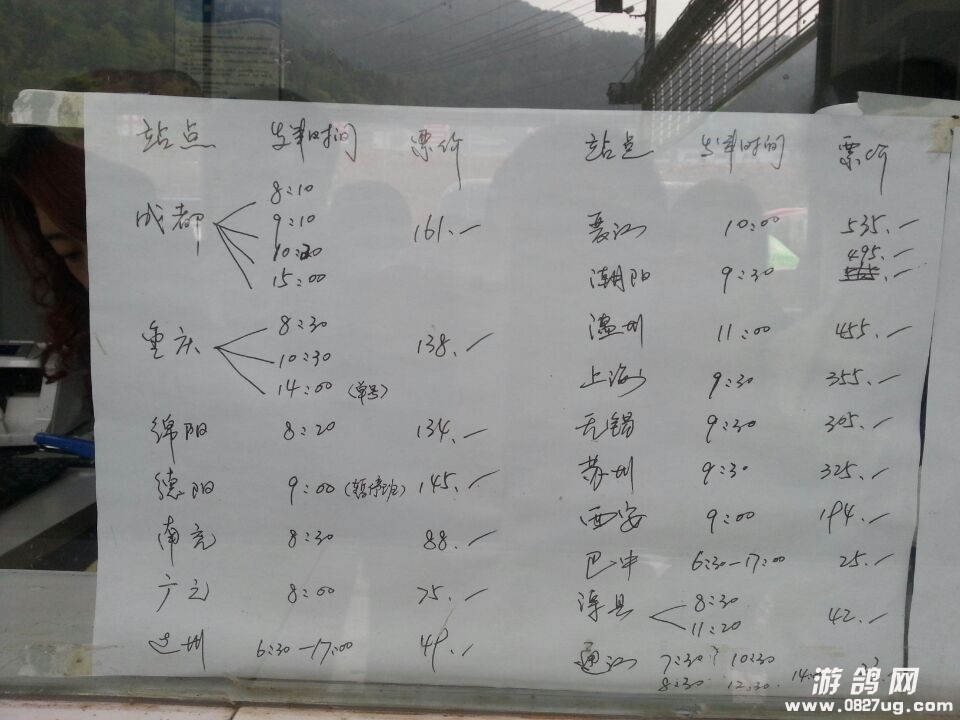 站点 发车时间 票价
成都 8:10 161.-
9:10
10:20
15:00
重庆 8:30 138.-
10:30
14:00 (单号)
绵阳 8:20 134.-
德阳 9:00 (暂停班) 145.-
南充 8:30 88.-
广元 8:00 75.-
达州 6:30-17:00 49.-
站点 发车时间 票价
厦门 10:00 535.-
潮阳 9:30 495.-
温州 11:00 455.-
上海 9:30 355.-
无锡 9:30 305.-
苏州 9:30 325.-
西安 9:00 194.-
巴中 6:30-17:00 25.-
8:30 42.-
11:20
通江 7:30 10:30
8:30 12:30
游鸽网
www.0827ug.com